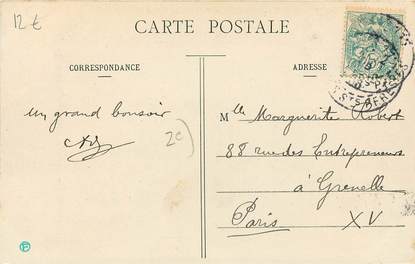 12 €
CARTE POSTALE
CORRESPONDANCE
ADRESSE
un grand bonsoir
2c
Mlle Marguerite Robert
88 rue des Entrepreneurs
à Grenelle
Paris XV